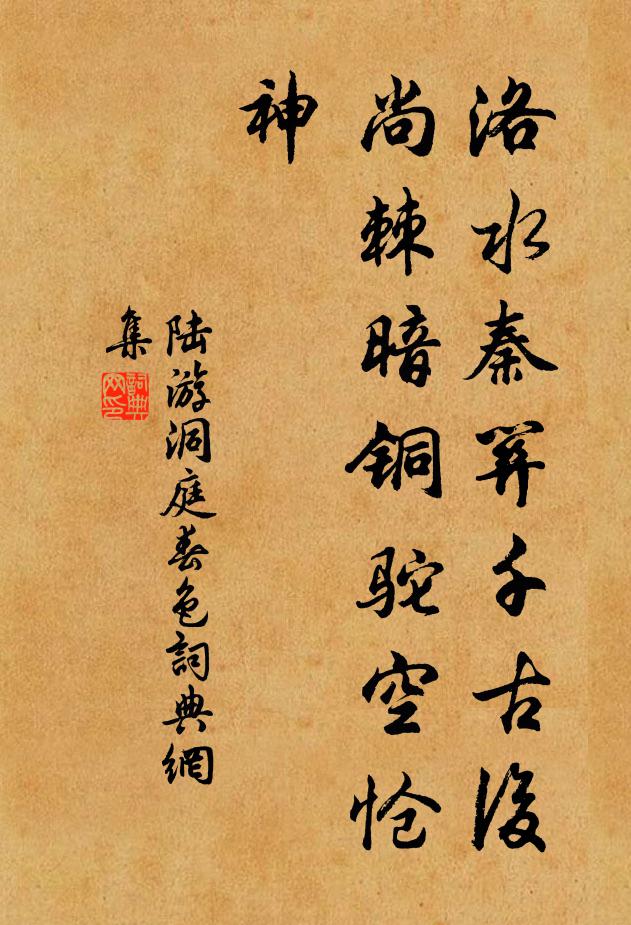 洛水秦關千古後
尚棘暗铜驼空怆
神
陆游洞庭春色詞典網
集
詞典网印